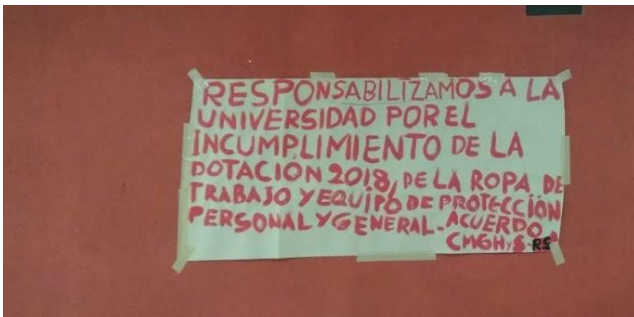 RESPONSABILIZAMOS A LA
UNIVERSIDAD POR EL
INCUMPLIMIENTO DE LA
DOTACION 2018, DE LA ROPA DE
TRABAJO Y EQUIPO DE PROTECCIÓN
PERSONAL Y GENERAL-ACUERDO
CMGHyS-RS